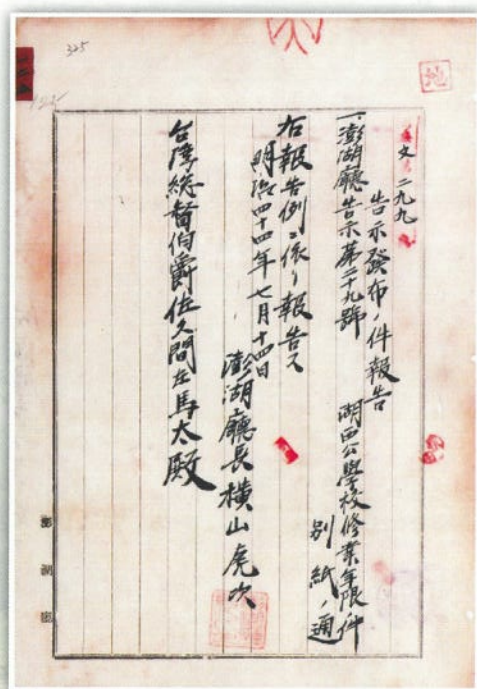 325
125
地
文二九九
告示發布ノ件報告
一、澎湖廳告示第二十九號 湖西公學校修業年限ノ件
別紙ノ通
右報告例ニ依リ報告ス
明治四十四年七月十四日
澎湖廳長橫山虎次
台灣總督伯爵佐久間左馬太殿
澎湖廳